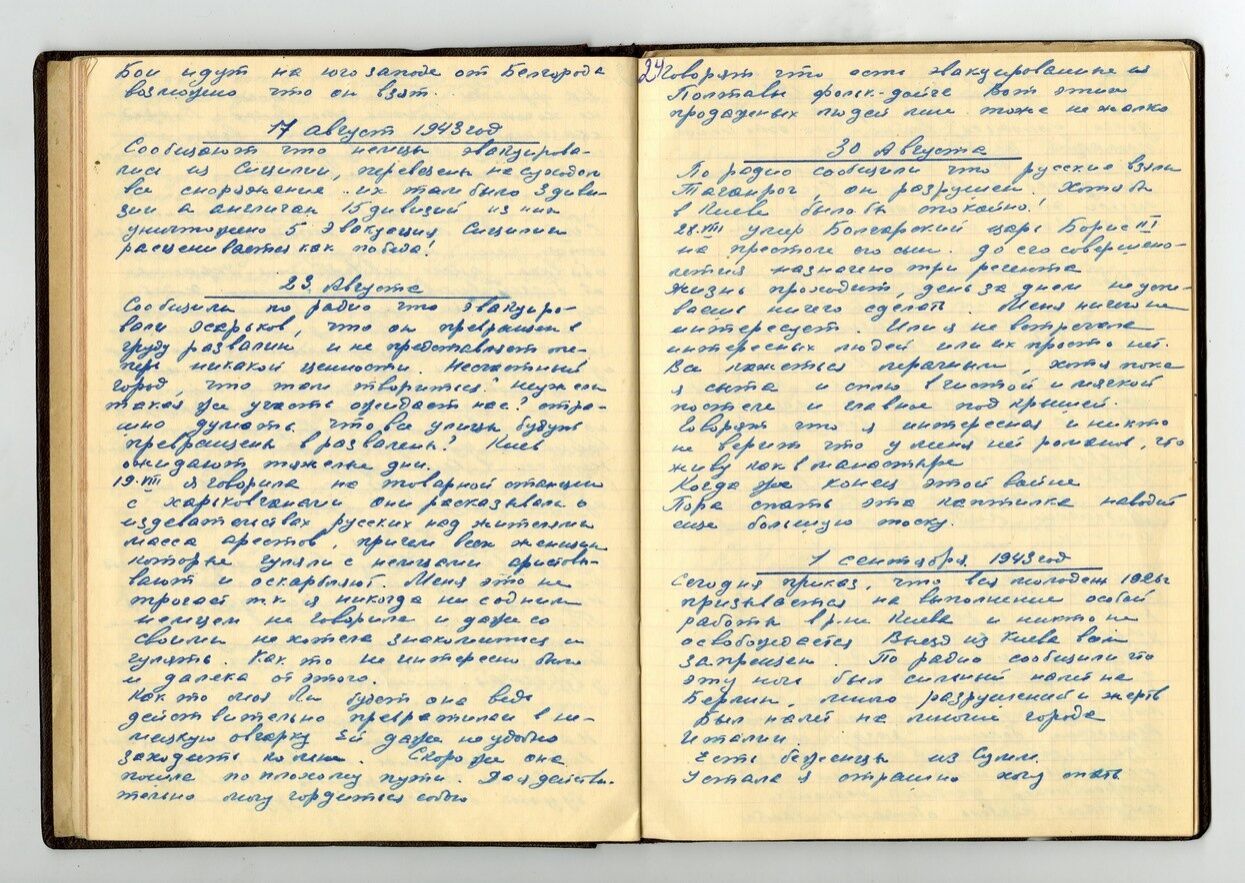 Бои идут на юго западе от Белгорода
возможно что он взят.
17 август 1943 год
Сообщают что немцы эвакуирова-
лись из Сицилии, перевезены на суходол
все снаряжение их там было 3 диви-
зии а англичан 15 дивизий из них
уничтожено 5 Эвакуация Сицилии
расценивается как победа!
23. Августа
Сообщили по радио что эвакуиро-
вали Харьков, что он превращен в
груду развалин и не представляет те-
перь никакой ценности. Несчастный
город, что там творится? неужели
такая же участь ожидает нас? стра-
шно думать, что все улицы будут
превращены в развалены? Киев
ожидают тяжелые дни.
19.VIII я говорила на товарной станции
с харьковчанами они рассказывали о
издевательствах русских над жителями
масса арестов, причем всех женщин
которые гуляли с немцами аристовы-
вают и оскарбляют. Меня это не
трогает т.к я никогда ни с одним
немцем не говорила и даже со
своими не хотела знакомиться и
гулять. Как то не интересно было
и далека от этого.
Как то моя будет она ведь
действительно превратилась в не-
мецкую овчарку ей даже неудобно
заходить ко мне. Скоро же она
пошла по плохому пути. Я действи-
тельно могу гордиться собою
24 Говорят что есть эвакуированные из
Полтавы фольк-дойче Вот этих
продажных людей мне тоже не жалко
30 Августа
По радио сообщили что русские взяли
Таганрог, он разрушен. Хотя бы
в Киеве было бы спокойно!
28.VIII умер Болгарский царь Борис III
на престоле его сын. до его совершено-
летия назначено три регента
Жизнь проходит, день за днем не успе-
ваешь ничего сделать. Меня ничего не
интересует. Или я не встречала
интересных людей или их просто нет.
Все кажеться мрачным, хотя пока
я сыта и сплю в чистой и мягкой
постеле и главное под крышей.
Говорят что я интересная и никто
не верит что у меня нет романов, что
живу как в манастыре
Когда же конец этой войне
Пора спать эта коптилка наводит
еще большую тоску.
1 сентября 1943 год
Сегодня приказ, что вся молодежь 1926г
призывается на выполнение особой
работы в р-не Киева и никто не
освобождается Выезд из Киева всем
запрещен. По радио сообщили что
эту ночь был сильный налет на
Берлин, много разрушений и жертв
Был налет на многие города
Италии.
Есть беженцы из Сумм.
Устала я страшно хочу спать